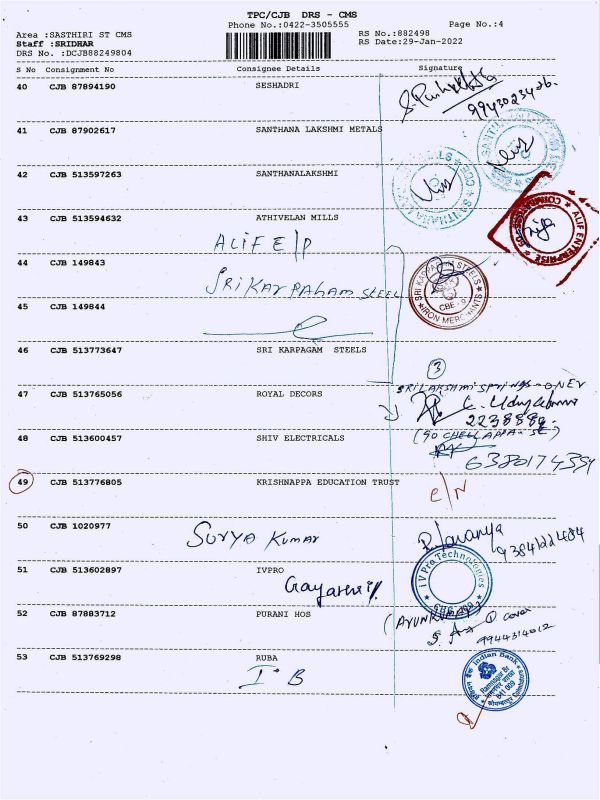 TPC/CJB DRS - CMS
Phone No.:0422-3505555
Page No.:4
Area :SASTHIRI ST CMS
RS No.:882498
Staff :SRIDHAR
RS Date:29-Jan-2022
DRS No. :DCJB88249804
S No Consignment No Consignee Details Signature
40 CJB 87894190 SESHADRI
9943023426.
41 CJB 87902617 SANTHANA LAKSHMI METALS
42 CJB 513597263 SANTHANALAKSHMI
43 CJB 513594632 ATHIVELAN MILLS
ALIF ENTERPRISE
ALIF E/P
44 CJB 149843
SRI KARPAGAM STEELS
IRON MERCHANTS
CBE - 9
SRI KARPAGAM STEEL
45 CJB 149844
46 CJB 513773647 SRI KARPAGAM STEELS
3
47 CJB 513765056 ROYAL DECORS
SRI LAKSHMI SPRINGS-
48 CJB 513600457 SHIV ELECTRICALS
49 CJB 513776805 KRISHNAPPA EDUCATION TRUST
50 CJB 1020977
SURYA KUMAR
9384122484
51 CJB 513602897 IVPRO
iVPro Technologies
Gayathri
52 CJB 87883712 PURANI HOS
cover
9944314012
53 CJB 513769298 RUBA
I B
Indian Bank
Ramnagar Br
641 009